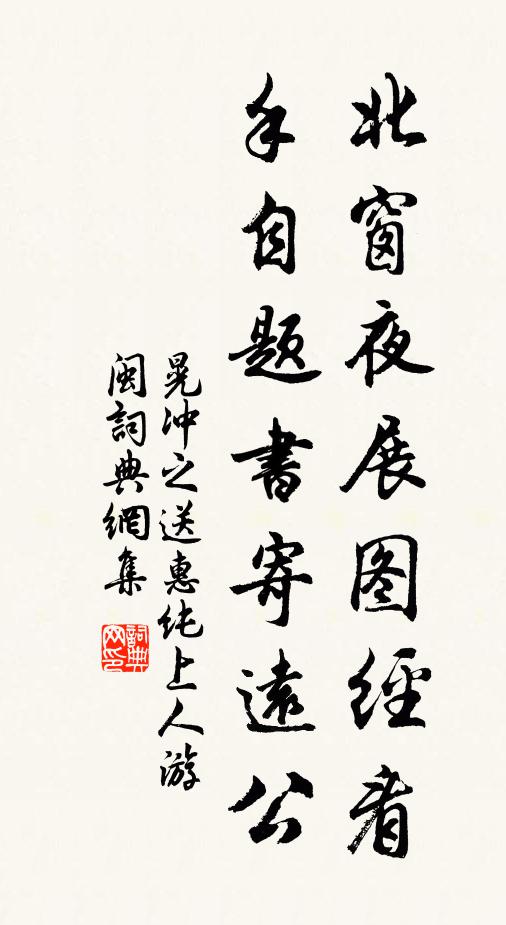 北窗夜展图經看
手自题書寄遠公
晁冲之送惠纯上人游
闽詞典網集
詞典网印